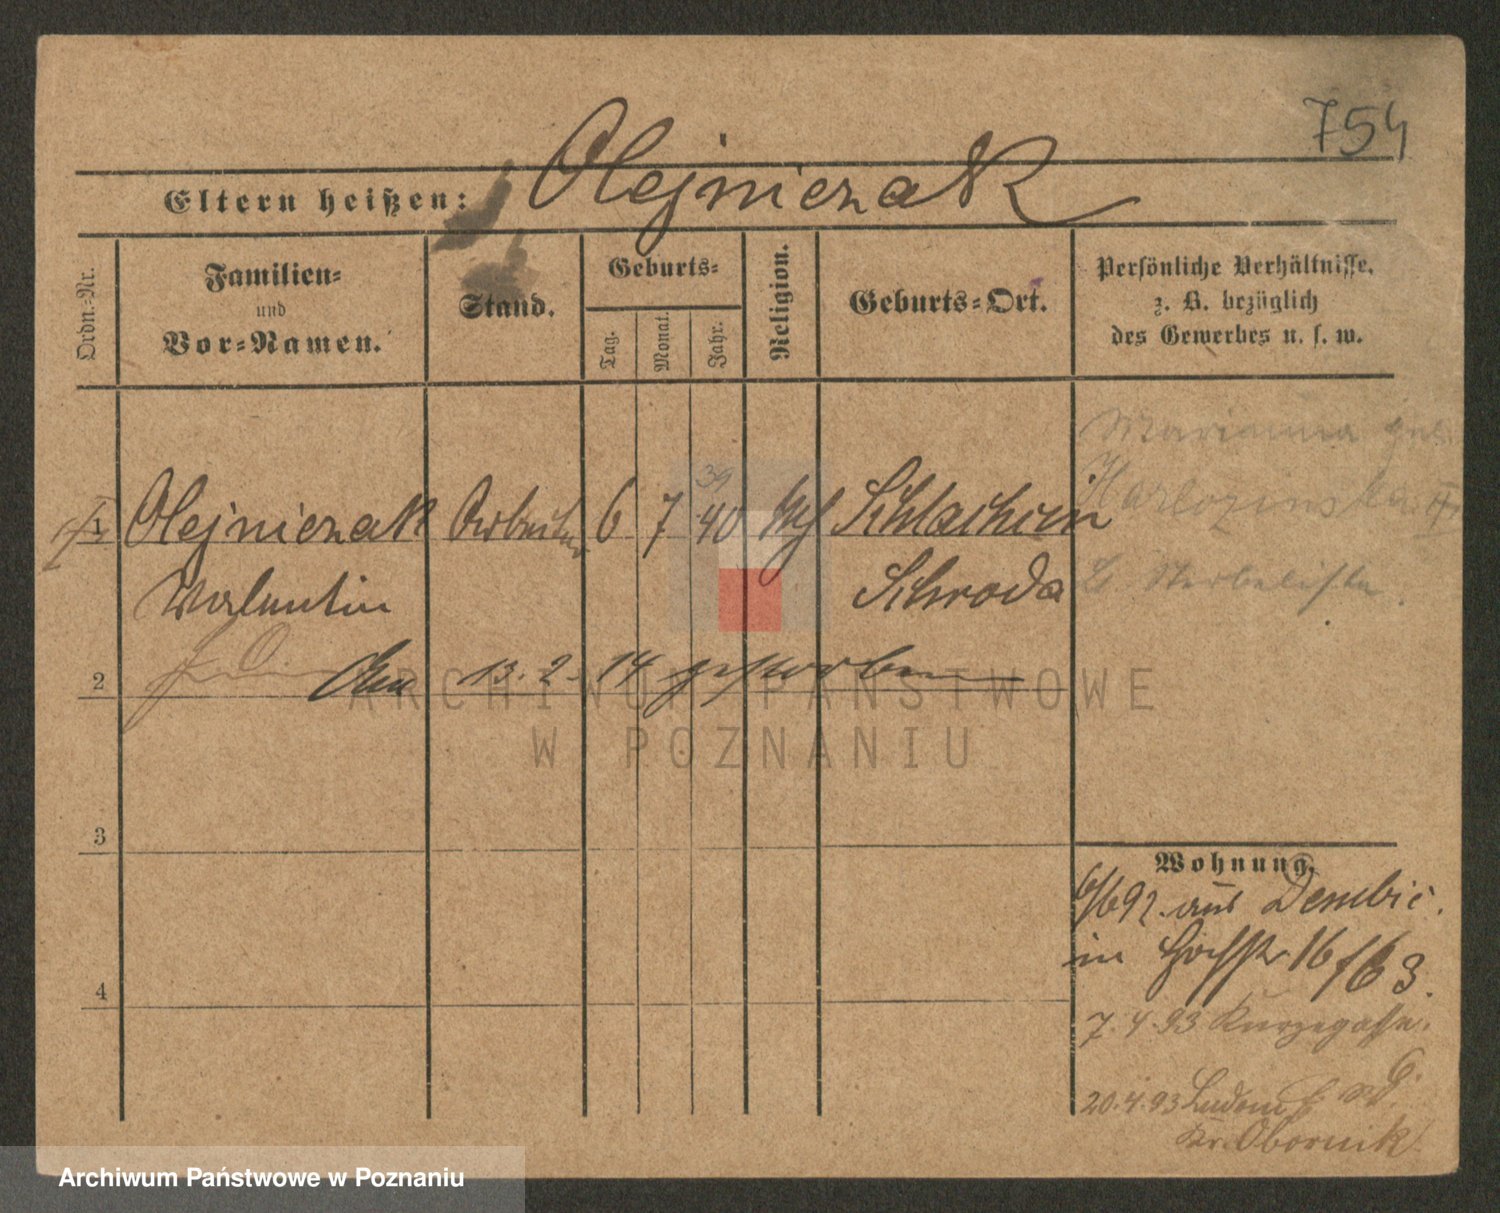 754
Eltern heißen: Olejniczak
Ordn.-Nr.
Familien-
und
Vor-Namen.
Stand.
Geburts-
Tag.
Monat.
Jahr.
Religion.
Geburts-Ort.
Persönliche Verhältnisse,
z. B. bezüglich
des Gewerbes u. s. w.
Marianna geb.
39
1 Olejniczak Arbeiter 6 7 40 Schlachcin
Valentin Schroda
L. Sterbeliste.
2 13. 2. 14 gestorben
ARCHIWUM PAŃSTWOWE
W POZNANIU
3
4
Wohnung.
6/6 92. aus Dembić.
in 16/63.
7. 4. 93 Kurzegasse.
6.
20. 4. 93 Ludom
Kr. Obornik
Archiwum Państwowe w Poznaniu